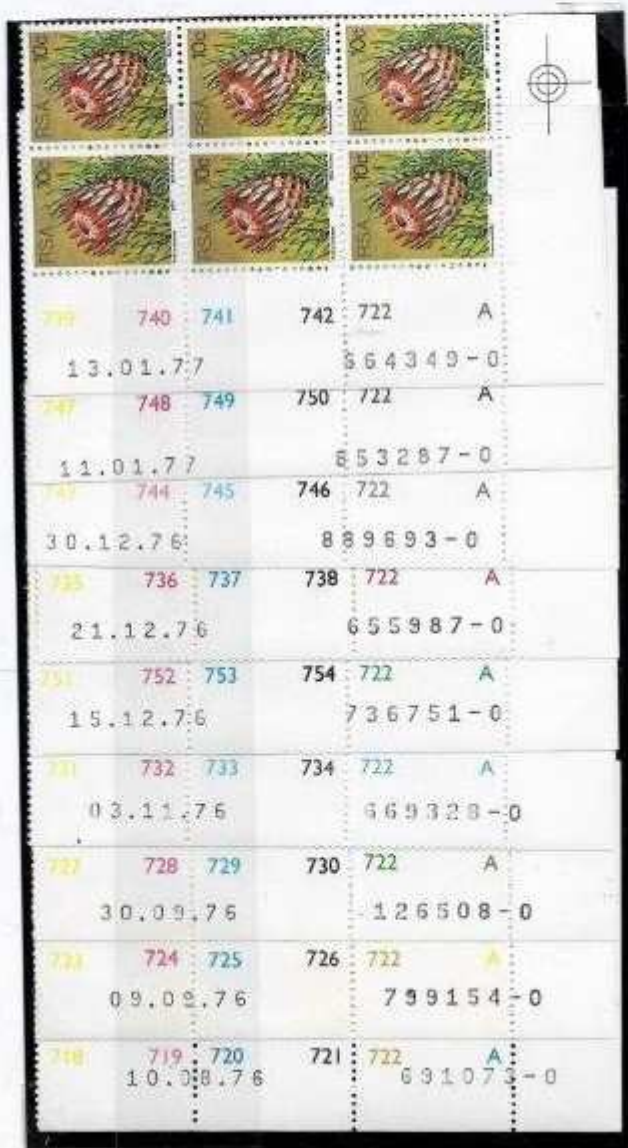 RSA 10c RSA 10c RSA 10c
RSA 10c RSA 10c RSA 10c
739 740 741 742 722 A
13.01.77 664349-0
747 748 749 750 722 A
11.01.77 653287-0
743 744 745 746 722 A
30.12.76 889693-0
735 736 737 738 722 A
21.12.76 655987-0
751 752 753 754 722 A
15.12.76 736751-0
731 732 733 734 722 A
03.11.76 669328-0
727 728 729 730 722 A
30.09.76 126508-0
723 724 725 726 722 A
09.09.76 799154-0
718 719 720 721 722 A
10.08.76 691073-0